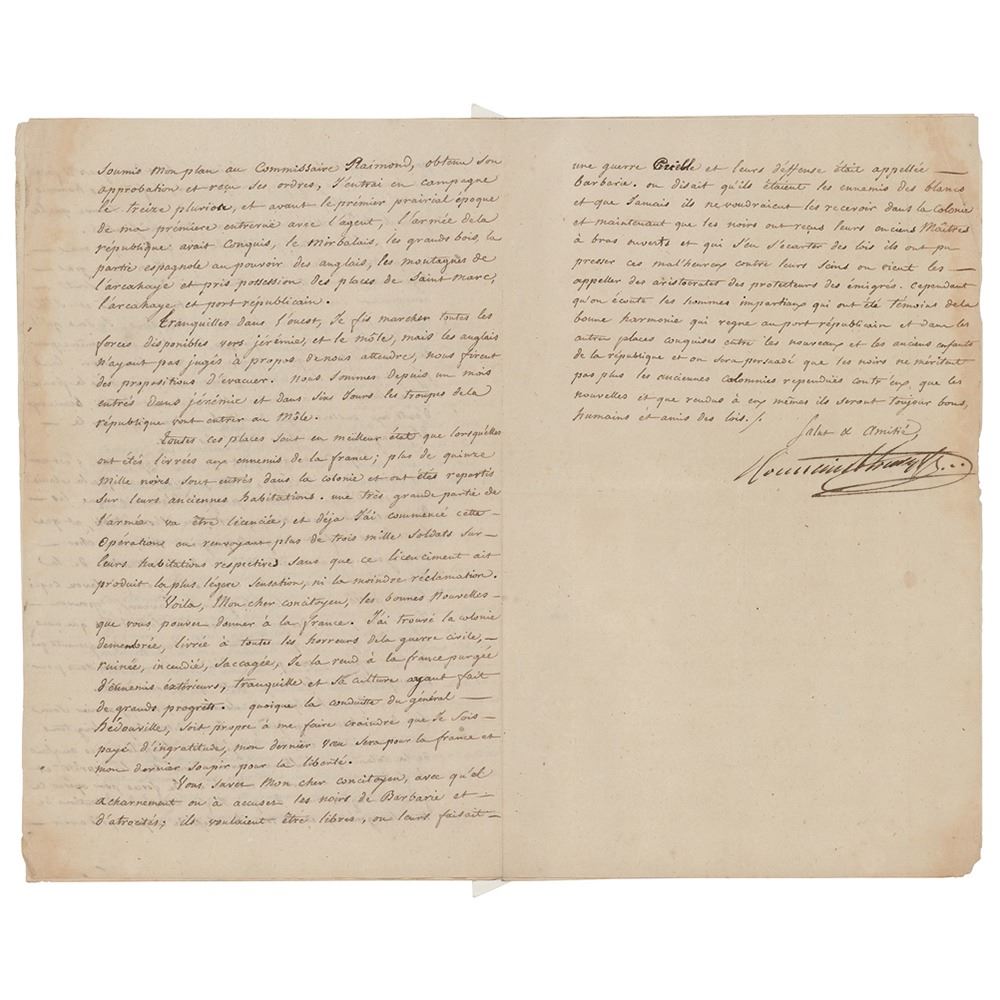 soumis mon plan au Commissaire Raimond, obtenu son
approbation et reçu ses ordres, J'entrai en campagne
le treize pluriose, et avant le prémier prairial époque
de ma prémiere entrevue avec l'agent, l'armée dela
république avait conquis, le mirbalais, les grands bois, la
partie espagnole au pouvoir des anglais, les montagnes de
l'arcahaye et pris possession des places de Saint Marc,
l'arcahaye et port républicain.
Tranquilles dans l'ouest, Je fis marcher toutes les
forces disponibles vers jérémie, et le môle, mais les anglais
n'ayant pas jugés à propos de nous attendre, nous firent
des propositions d'évacuer. nous sommes depuis un mois
entrés dans jérémie et dans six Jours les troupes de la
république vont entrer au Môle.
Toutes ces places sont en meilleur état que lorsqu'elles
ont étés livrées aux ennemis de la france; plus de quinze
mille noirs sont entrés dans la colonie et ont étés repartis
sur leurs anciennes habitations. une très grande partie de
l'armée va être licenciée, et déja J'ai commencé cette
opérations en renvoyant plus de trois mille soldats sur
leurs habitations respectives sans que ce licenciment ait
produit la plus légere sensation, ni la moindre réclamation.
Voila, Mon cher concitoyen, les bonnes Nouvelles
que vous pouvez donner à la france. J'ai trouvé la colonie
demembrée, livrée à toutes les horreurs dela guerre civile,
ruinée, incendiée, saccagée, Je la rend à la france purgée
d'énnemis éxtérieurs, tranquille et sa culture ayant fait
de grands progrèts. quoique la conduitte du général
hédouville, soit propre à me faire craindre que Je sois
payé d'ingratitude, mon dernier vœu sera pour la france et
mon dernier soupir pour la liberté.
Vous savez Mon cher concitoyen, avec qu'el
acharnement on à accusés les noirs de Barbarie et
d'atrocités; ils voulaient être libres, on leurs faisait
une guerre Cruelle et leurs déffense était appellée
barbarie. on disait qu'ils étaient les ennemis des blancs
et que Jamais ils ne voudraient les recevoir dans la Colonie
et maintenant que les noirs ont reçus leurs anciens Maîtres
à bras ouverts et qui s'en s'écarter des lois ils ont pu
presser ces mal'heureux contre leurs seins on vient les
appeller des aristocrates des protecteurs des émigrés. Cependant
qu'on écoute les hommes impartiaux qui ont été témoins dela
bonne harmonie qui regne au port républicain et dans les
autres places conquises entre les nouveaux et les anciens enfants
de la république et on sera persuadé que les noirs ne méritent
pas plus les anciennes calomnies rependuës contr'eux, que les
nouvelles et que rendus à eux mêmes ils seront toujour bons,
humains et amis des lois./.
Salut & amitié,
Toussaint Louverture